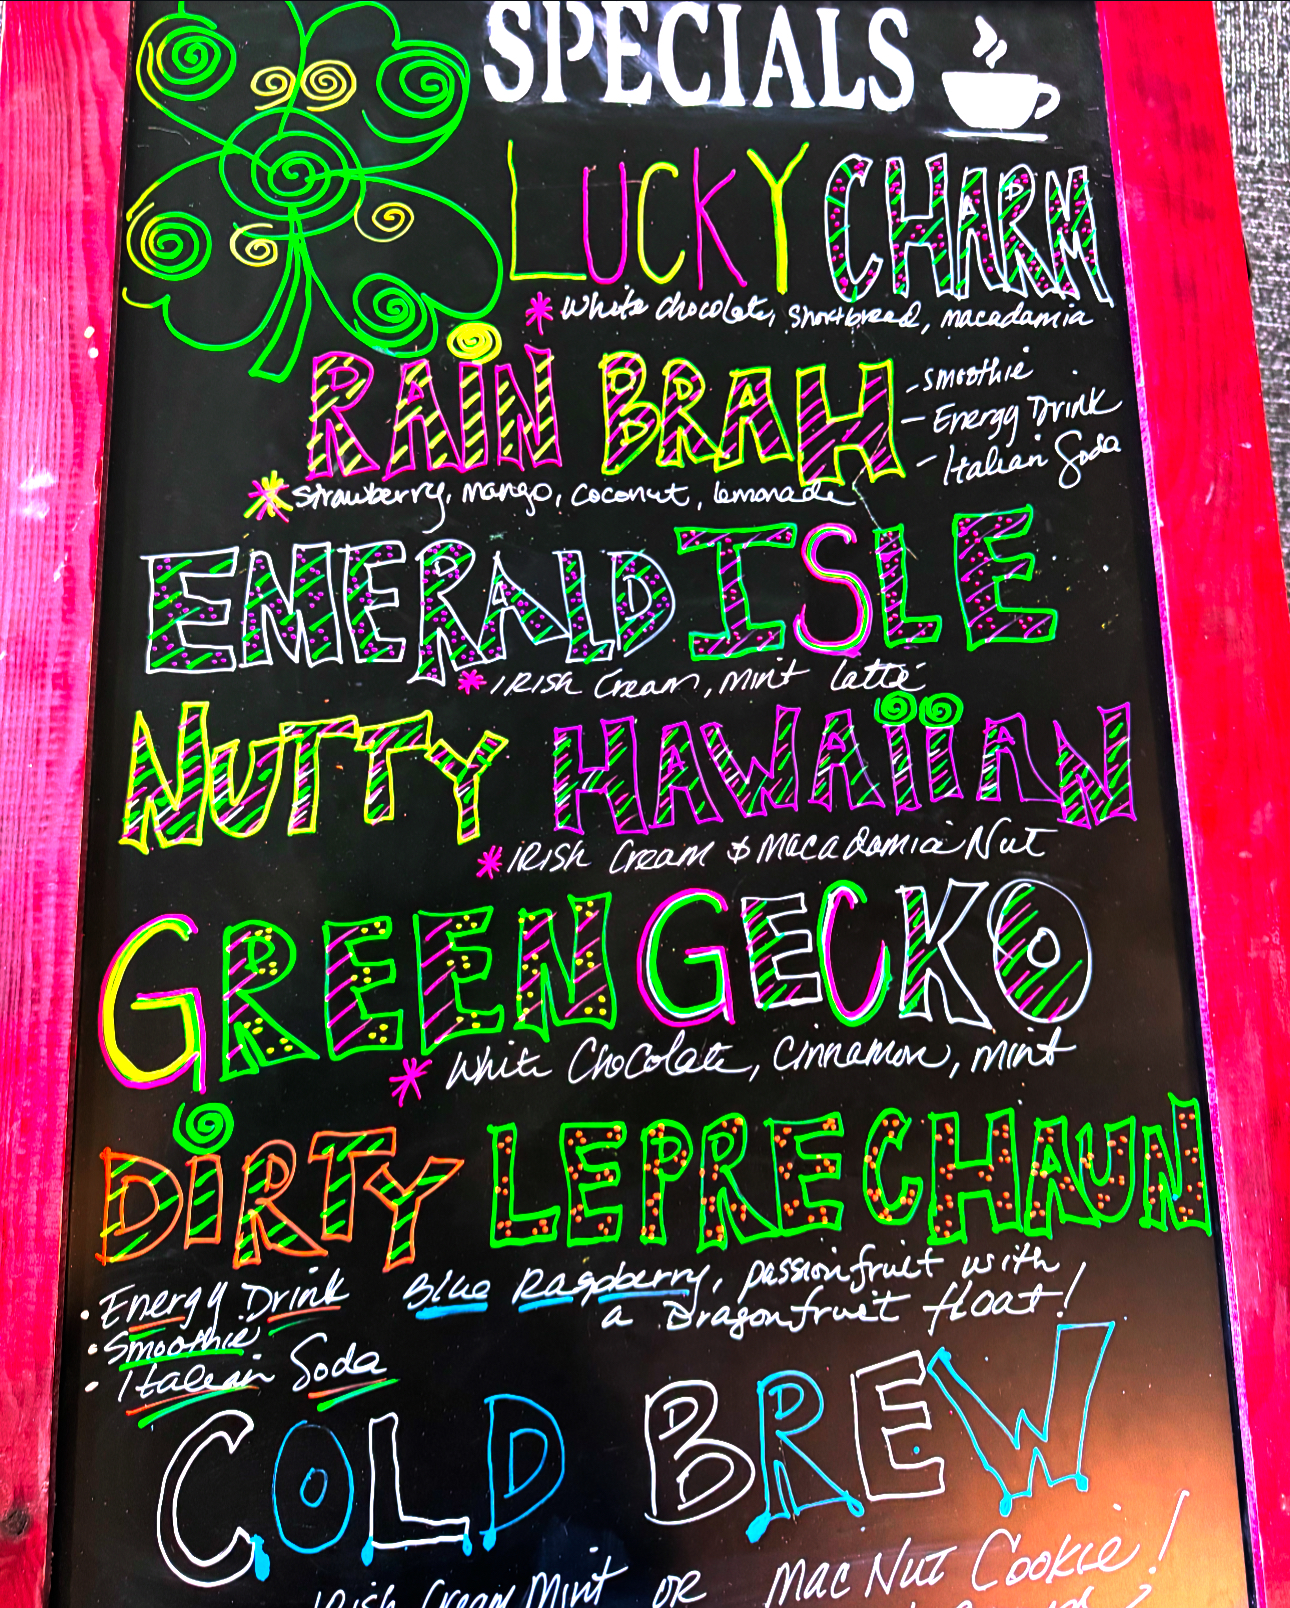 SPECIALS
LUCKY CHARM
*White chocolate, shortbread, macadamia
RAIN BRAH
- smoothie
- Energy Drink
- Italian Soda
*strawberry, mango, coconut, lemonade
EMERALD ISLE
*IRISH Cream, mint latte
NUTTY HAWAiiAN
*IRISH Cream & Macadamia Nut
GREEN GECKO
*White Chocolate, Cinnamon, mint
DiRTY LEPRECHAUN
• Energy Drink
• Smoothie
• Italian Soda
Blue Raspberry, passionfruit with
a Dragonfruit float!
COLD BREW
IRish Cream Mint or Mac Nut Cookie!